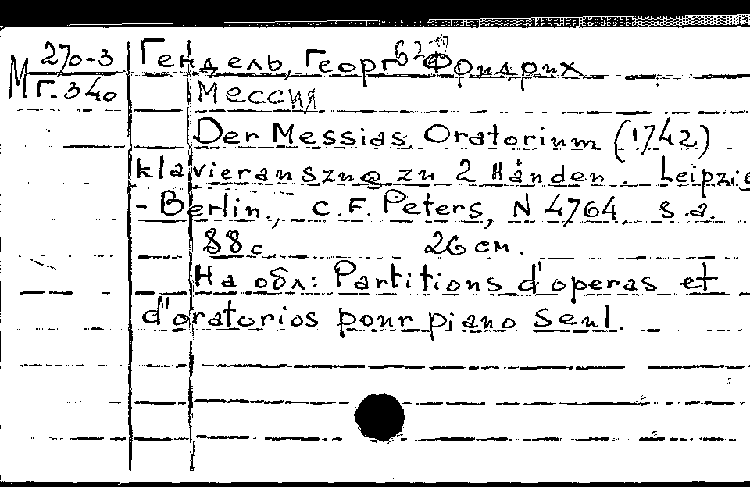 М 270-3
Г.340
Гендель, Георг Фридрих
Мессия
Der Messias Oratorium (1742)
klavierauszug zu 2 Händen. Leipzig
- Berlin., C.F. Peters, N 4764, s.a.
88 с 26 см.
На обл: Partitions d'operas et
d'oratorios pour piano seul.